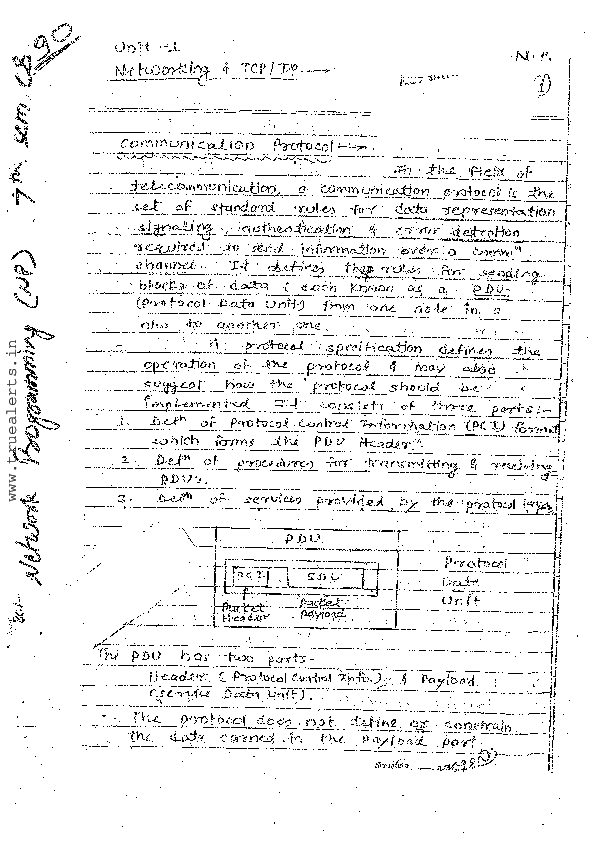 Unit -1
N.P.
Networking & TCP/IP
1
Communication Protocol
In the field of
telecommunication, a communication protocol is the
set of standard rules for data representation
signaling, authentication & error detection
required to send information over a comm^n
channel. It defines the rules for sending
blocks of data (each known as a PDU
(Protocol Data Unit) from one node in a
n/w to another one.
A protocol specification defines the
operation of the protocol & may also
suggest how the protocol should be
implemented. It consists of three parts:-
1. Def^n of Protocol Control Information (PCI) format
which forms the PDU Header
2. Def^n of procedures for transmitting & receiving
PDUs.
3. Def^n of services provided by the protocol layer
PDU
PCI SDU
Packet Header
Packet Payload
Protocol
Data
Unit
The PDU has two parts-
Header (Protocol Control Info.) & Payload
(Service Data Unit).
The protocol does not define or constrain
the data carried in the payload part
www.truealerts.in
Network Programming (NP) 7th sem CS
90